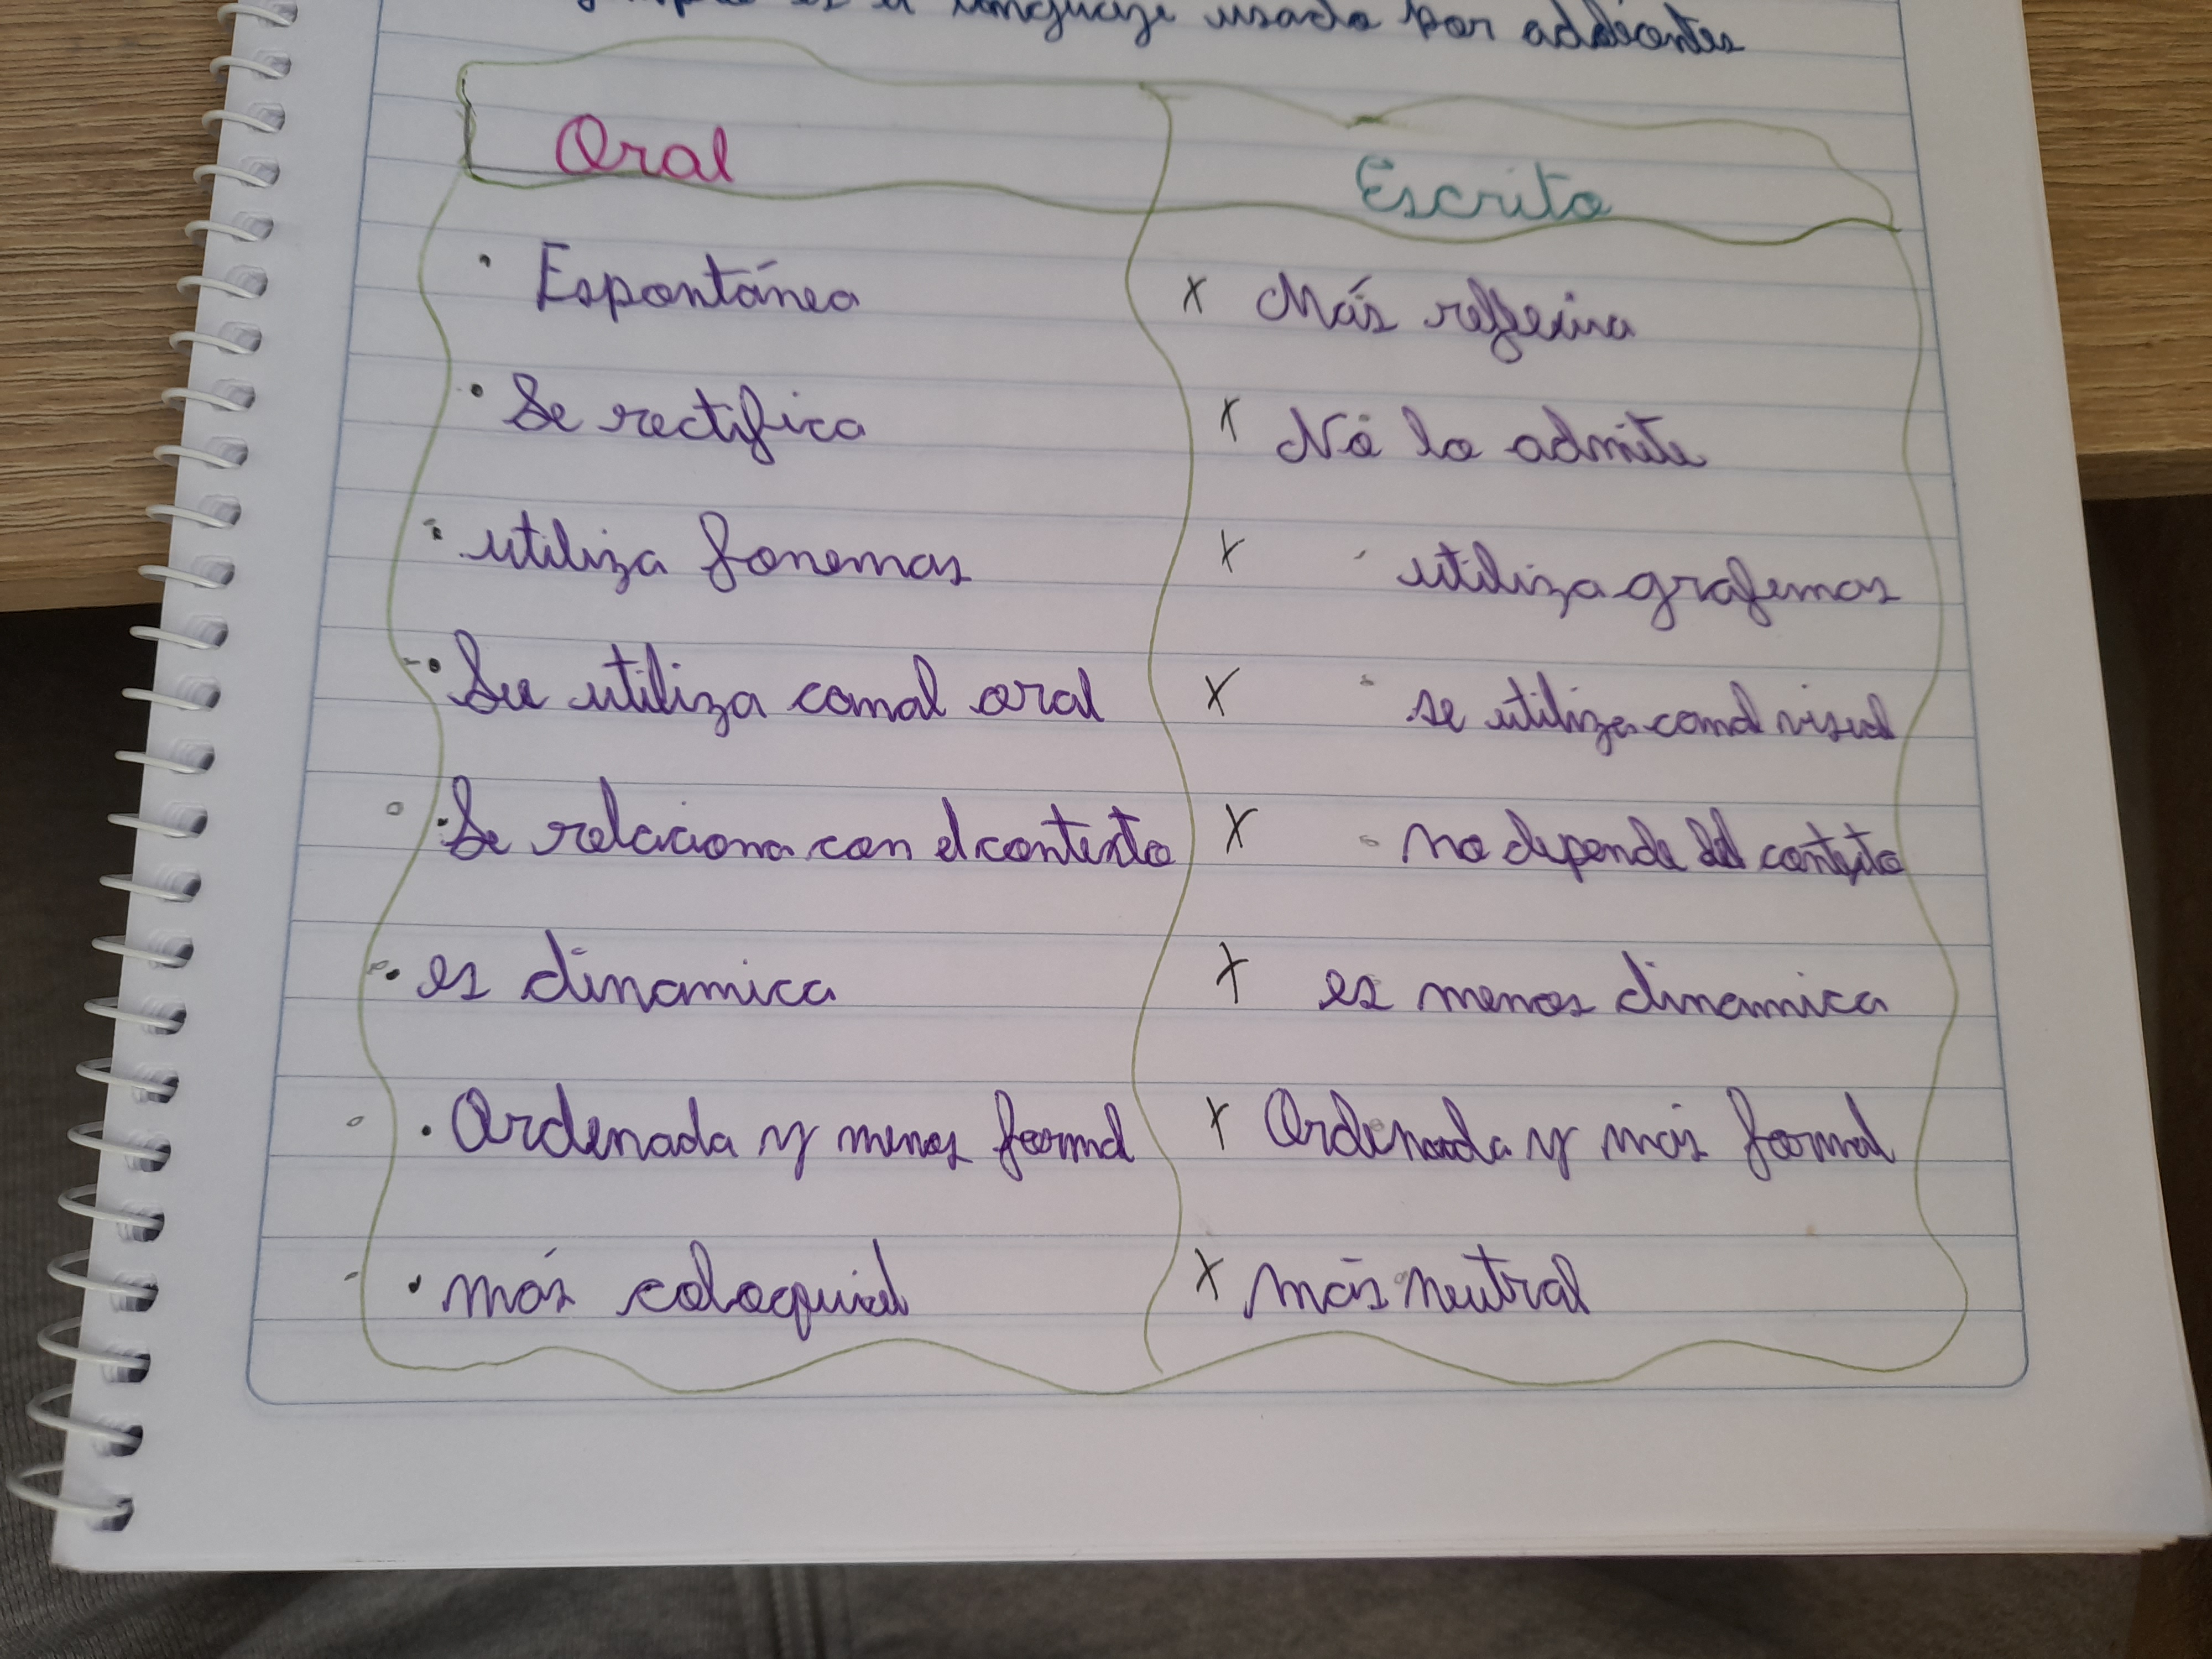 es el lenguaje usado por
Oral
Escrito
Espontáneo
x Más reflexiva
Se rectifica
x No lo admite
utiliza fonemas
x utiliza grafemas
Se utiliza canal oral
x se utiliza canal visual
Se relaciona con el contexto
x no depende del contexto
es dinamica
x es menos dinamica
Ordenada y menos formal
x Ordenada y más formal
más coloquial
x más neutral